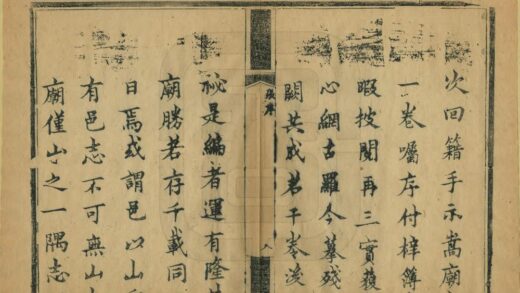 次回籍手示嵩廟
一卷囑序付梓簿
暇披閱再三實獲
心網古羅今摹殘
闕共成若干卷
序
八
秘是編者運有隆
廟勝若存千載同
日焉或謂邑以山
有邑志不可無山
廟僅山之一隅志